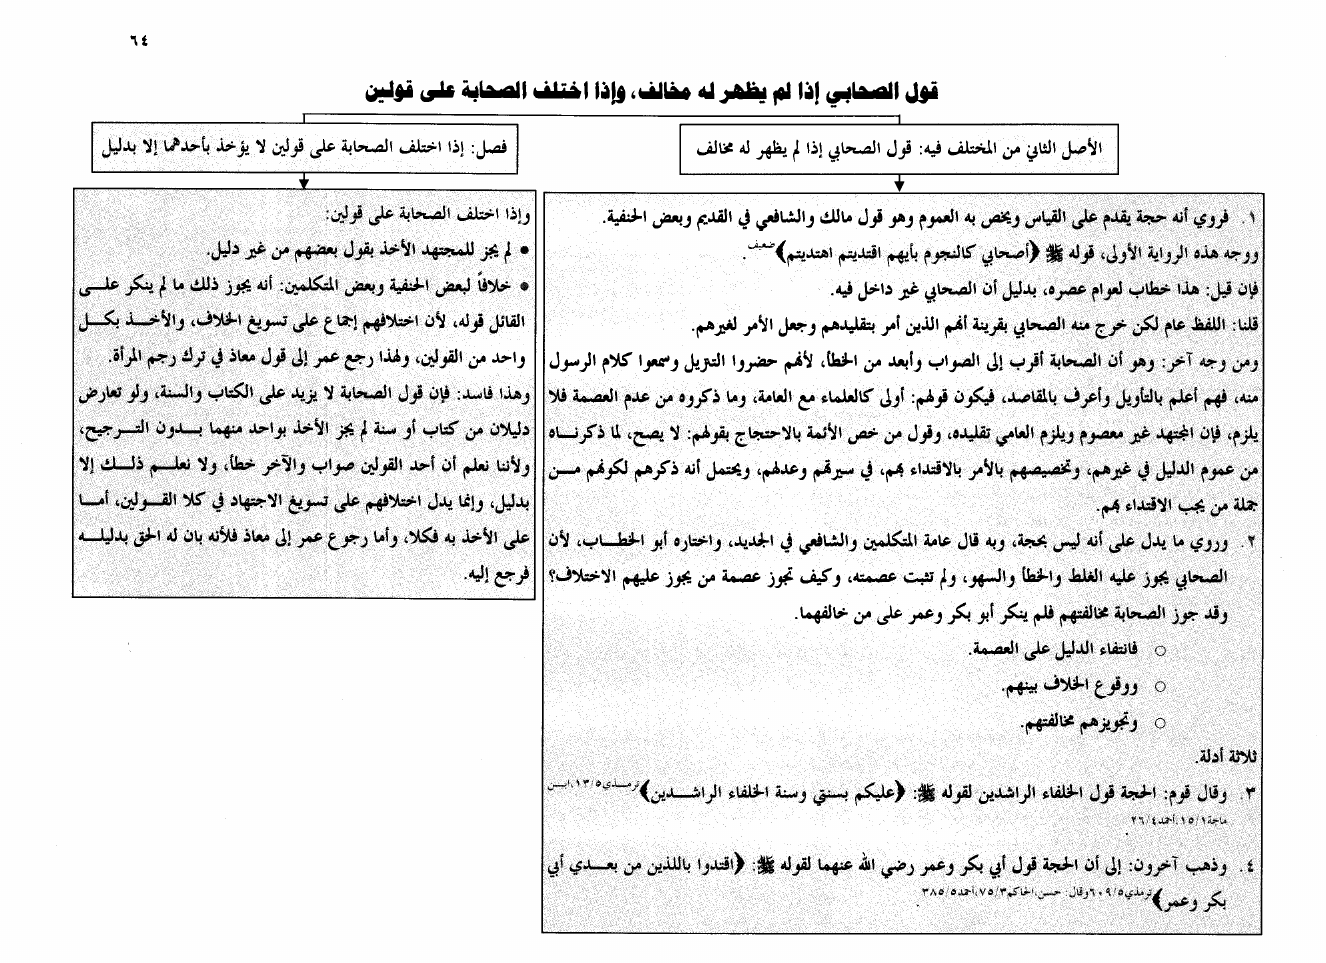 ٦٤
قول الصحابي إذا لم يظهر له مخالف، وإذا اختلف الصحابة على قولين
الأصل الثاني من المختلف فيه: قول الصحابي إذا لم يظهر له مخالف
١. فروي أنه حجة يقدم على القياس ويخص به العموم وهو قول مالك والشافعي في القديم وبعض الحنفية.
ووجه هذه الرواية الأولى، قوله ﷺ ﴿أصحابي كالنجوم بأيهم اقتديتم اهتديتم﴾ضعيف.
فإن قيل: هذا خطاب لعوام عصره، بدليل أن الصحابي غير داخل فيه.
قلنا: اللفظ عام لكن خرج منه الصحابي بقرينة أنهم الذين أمر بتقليدهم وجعل الأمر لغيرهم.
ومن وجه آخر: وهو أن الصحابة أقرب إلى الصواب وأبعد من الخطأ، لأنهم حضروا التنزيل وسمعوا كلام الرسول
منه، فهم أعلم بالتأويل وأعرف بالمقاصد، فيكون قولهم: أولى كالعلماء مع العامة، وما ذكروه من عدم العصمة فلا
يلزم، فإن المجتهد غير معصوم ويلزم العامي تقليده، وقول من خص الأئمة بالاحتجاج بقولهم: لا يصح، لما ذكرنـاه
من عموم الدليل في غيرهم، وتخصيصهم بالأمر بالاقتداء بهم، في سيرتهم وعدلهم، ويحتمل أنه ذكرهم لكونهم مـــن
جملة من يجب الاقتداء بهم.
٢. وروي ما يدل على أنه ليس بحجة، وبه قال عامة المتكلمين والشافعي في الجديد، واختاره أبو الخطــاب، لأن
الصحابي يجوز عليه الغلط والخطأ والسهو، ولم تثبت عصمته، وكيف تجوز عصمة من يجوز عليهم الاختلاف؟
وقد جوز الصحابة مخالفتهم فلم ينكر أبو بكر وعمر على من خالفهما.
○ فانتفاء الدليل على العصمة.
○ ووقوع الخلاف بينهم.
○ وتجويزهم مخالفتهم.
ثلاثة أدلة.
٣. وقال قوم: الحجة قول الخلفاء الراشدين لقوله ﷺ: ﴿عليكم بسنتي وسنة الخلفاء الراشــدين﴾ترمـذي١٣/٥،ابــن
ماجة١٥/١،أحمد٢٦/٤
.
٤. وذهب آخرون: إلى أن الحجة قول أبي بكر وعمر رضي الله عنهما لقوله ﷺ: ﴿اقتدوا باللذين من بعـــدي أبي
بكر وعمر﴾ترمذي٦٠٩/٥وقال: حسن،الحاكم٧٥/٣،أحمد٣٨٥/٥.
فصل: إذا اختلف الصحابة على قولين لا يؤخذ بأحدهما إلا بدليل
وإذا اختلف الصحابة على قولين:
• لم يجز للمجتهد الأخذ بقول بعضهم من غير دليل.
• خلافاً لبعض الحنفية وبعض المتكلمين: أنه يجوز ذلك ما لم ينكر علــى
القائل قوله، لأن اختلافهم إجماع على تسويغ الخلاف، والأخــذ بكــل
واحد من القولين، ولهذا رجع عمر إلى قول معاذ في ترك رجم المرأة.
وهذا فاسد: فإن قول الصحابة لا يزيد على الكتاب والسنة، ولو تعارض
دليلان من كتاب أو سنة لم يجز الأخذ بواحد منهما بــدون التــرجيح،
ولأننا نعلم أن أحد القولين صواب والآخر خطأ، ولا نعلــم ذلــك إلا
بدليل، وإنما يدل اختلافهم على تسويغ الاجتهاد في كلا القــولين، أمــا
على الأخذ به فكلا، وأما رجوع عمر إلى معاذ فلأنه بان له الحق بدليلــه
فرجع إليه.